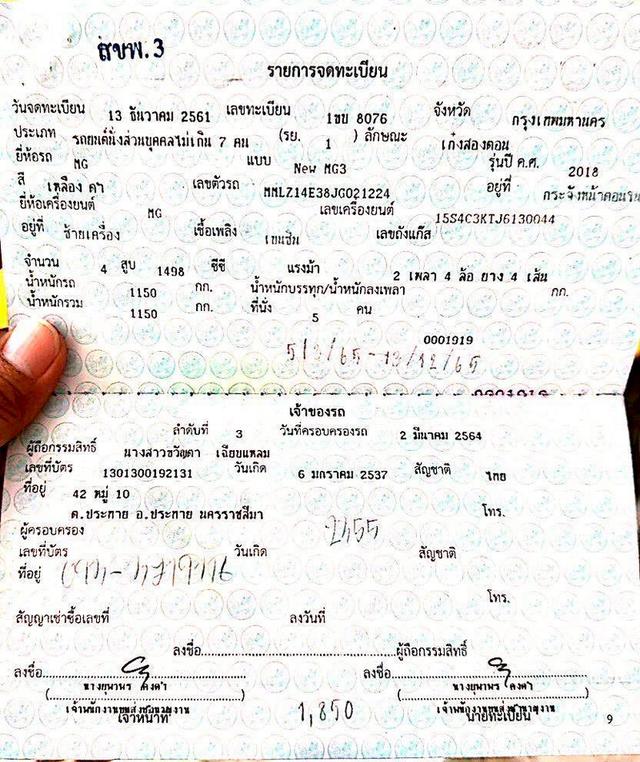 สขพ.3
รายการจดทะเบียน
วันจดทะเบียน 13 ธันวาคม 2561 เลขทะเบียน 1ขบ 8076 จังหวัด กรุงเทพมหานคร
ประเภท รถยนต์นั่งส่วนบุคคลไม่เกิน 7 คน (รย. 1 ) ลักษณะ เก๋งสองตอน
ยี่ห้อรถ MG แบบ New MG3 รุ่นปี ค.ศ. 2018
สี เหลือง ดำ เลขตัวรถ MMLZ14E38JG021224 อยู่ที่ กระจังหน้าตอนใน
ยี่ห้อเครื่องยนต์ MG เลขเครื่องยนต์ 15S4C3KTJ6130044
อยู่ที่ ซ้ายเครื่อง เชื้อเพลิง เบนซิน เลขถังแก๊ส
จำนวน 4 สูบ 1498 ซีซี แรงม้า 2 เพลา 4 ล้อ ยาง 4 เส้น
น้ำหนักรถ 1150 กก. น้ำหนักบรรทุก/น้ำหนักลงเพลา กก.
น้ำหนักรวม 1150 กก. ที่นั่ง 5 คน
0001919
5/3/65-13/12/65
เจ้าของรถ
ลำดับที่ 3 วันที่ครอบครองรถ 2 มีนาคม 2564
ผู้ถือกรรมสิทธิ์ นางสาวขวัญตา เฉียบแหลม
เลขที่บัตร 1301300192131 วันเกิด 6 มกราคม 2537 สัญชาติ ไทย
ที่อยู่ 42 หมู่ 10 โทร.
ต.ประทาย อ.ประทาย นครราชสีมา
ผู้ครอบครอง
เลขที่บัตร วันเกิด สัญชาติ
ที่อยู่
โทร.
สัญญาเช่าซื้อเลขที่ ลงวันที่
ลงชื่อ ผู้ถือกรรมสิทธิ์
ลงชื่อ ลงชื่อ
นางยุพาพร คงดำ นางยุพาพร คงดำ
เจ้าพนักงานขนส่งชำนาญงาน เจ้าพนักงานขนส่งชำนาญงาน
เจ้าหน้าที่ 1,850 นายทะเบียน
9